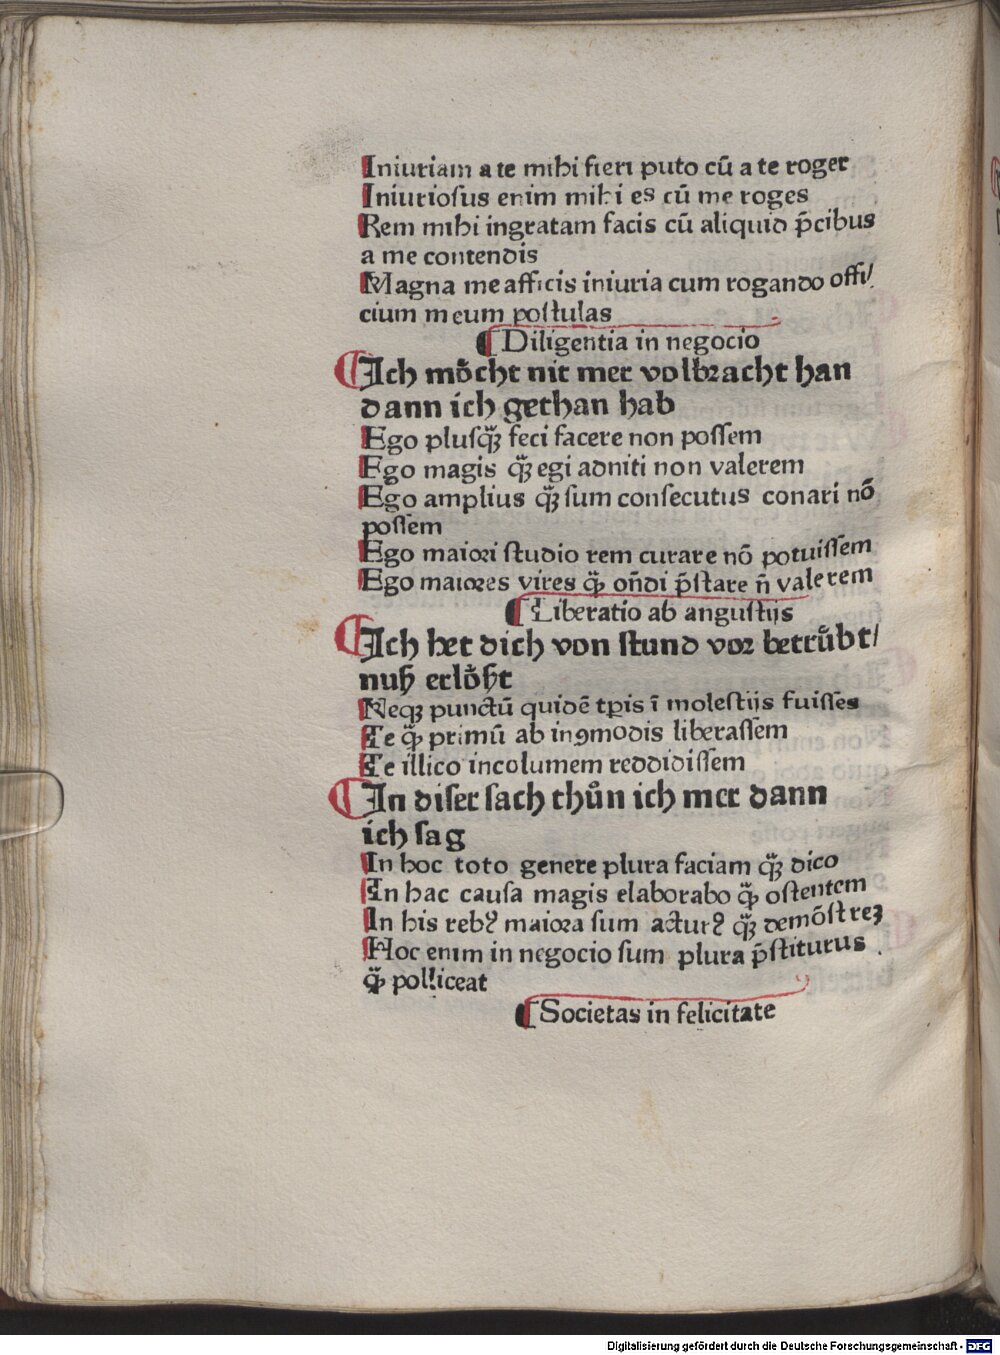 Iniuriam a te mihi fieri puto cū a te roger
Iniuriosus enim mihi es cū me roges
Rem mihi ingratam facis cū aliquid p̄cibus
a me contendis
Magna me afficis iniuria cum rogando offi/
cium meum postulas
¶ Diligentia in negocio
¶ Ich mo̊cht nit mer volbracht han
dann ich gethan hab
Ego plusqꝫ̄ feci facere non possem
Ego magis qꝫ̄ egi adniti non valerem
Ego amplius qꝫ̄ sum consecutus conari nō
possem
Ego maiori studio rem curare nō potuissem
Ego maiores vires qꝫ̄ on̄di p̄stare n̄ valerem
¶ Liberatio ab angustijs
¶ Ich het dich von stund vor betru̍bt/
nuß erlo̍ßt
Neqꝫ punctū quidē tꝑis ī molestijs fuisses
Te qꝫ̄ primū ab inꝯmodis liberassem
Te illico incolumem reddidissem
¶ In diser sach thůn ich mer dann
ich sag
In hoc toto genere plura faciam qꝫ̄ dico
In hac causa magis elaborabo qꝫ̄ ostentem
In his rebꝰ maiora sum acturꝰ qꝫ̄ demōstreꝫ
Hoc enim in negocio sum plura p̄stiturus
qꝫ̄ polliceat
¶ Societas in felicitate
Digitalisierung gefördert durch die Deutsche Forschungsgemeinschaft - DFG